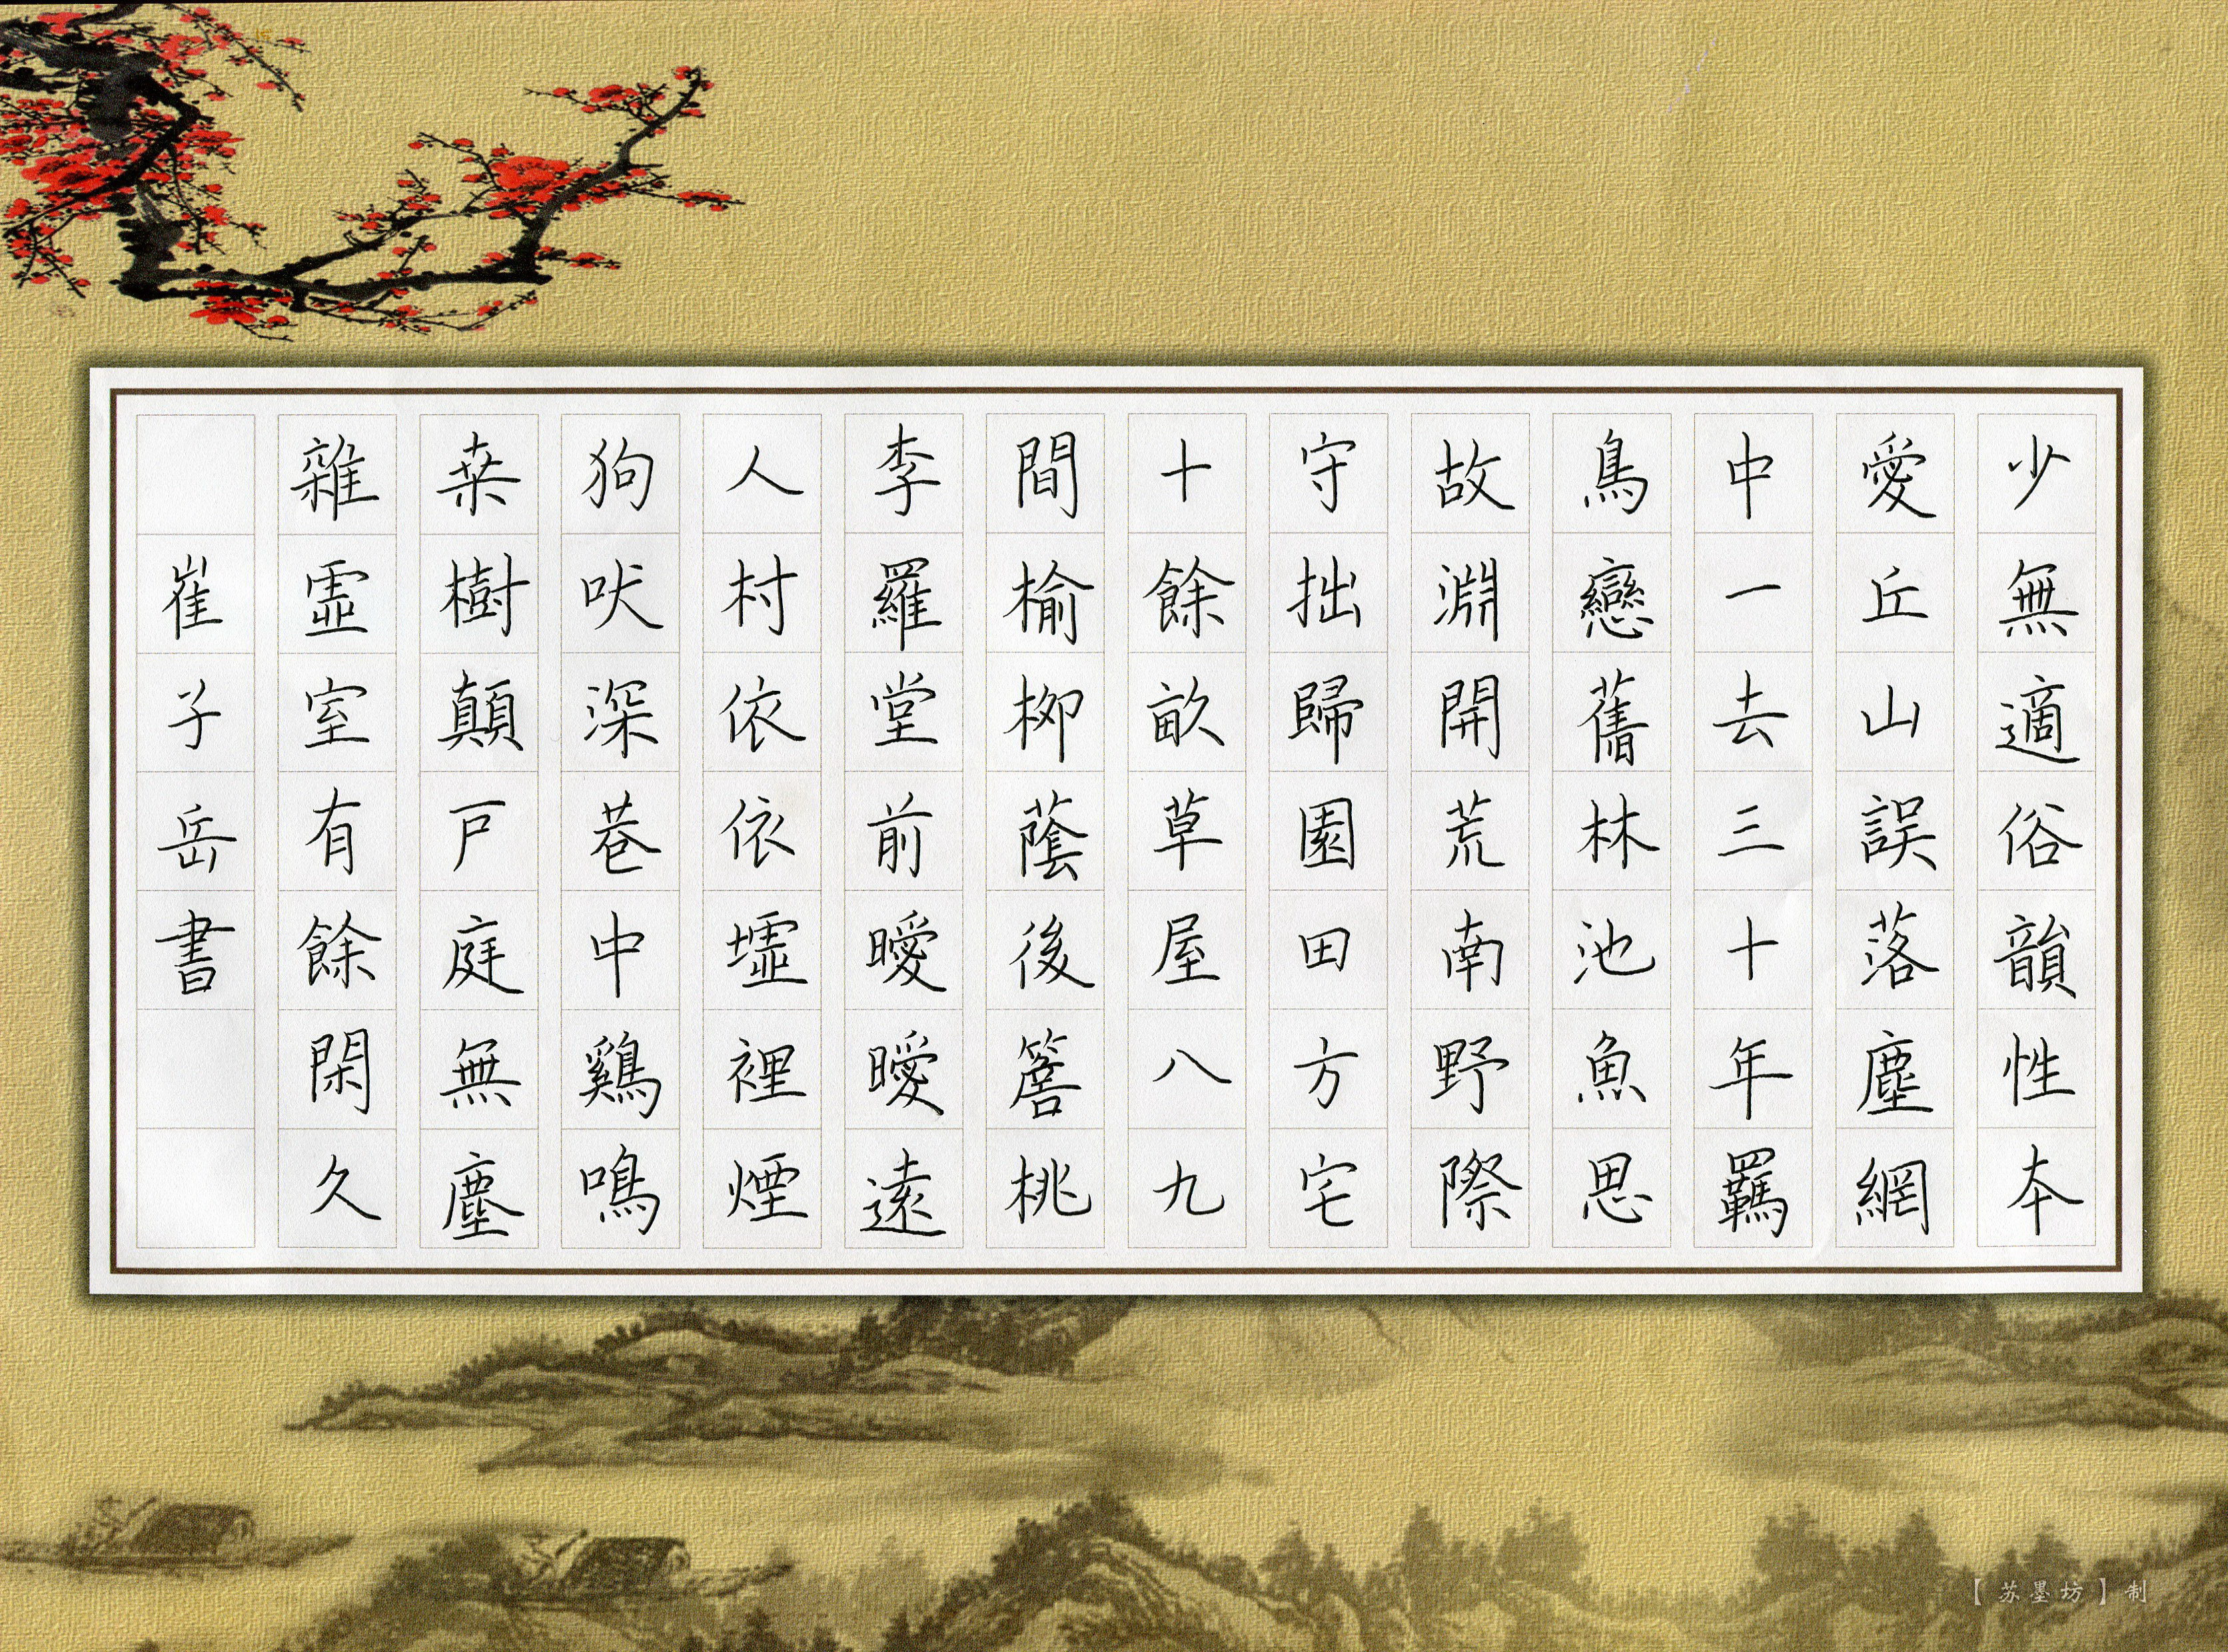 少無適俗韻性本
愛丘山誤落塵網
中一去三十年羈
鳥戀舊林池魚思
故淵開荒南野際
守拙歸園田方宅
十餘畝草屋八九
間榆柳蔭後簷桃
李羅堂前曖曖遠
人村依依墟裡煙
狗吠深巷中鷄鳴
桒樹顛戸庭無塵
雜虛室有餘閑久
崔子岳書
【苏墨坊】制